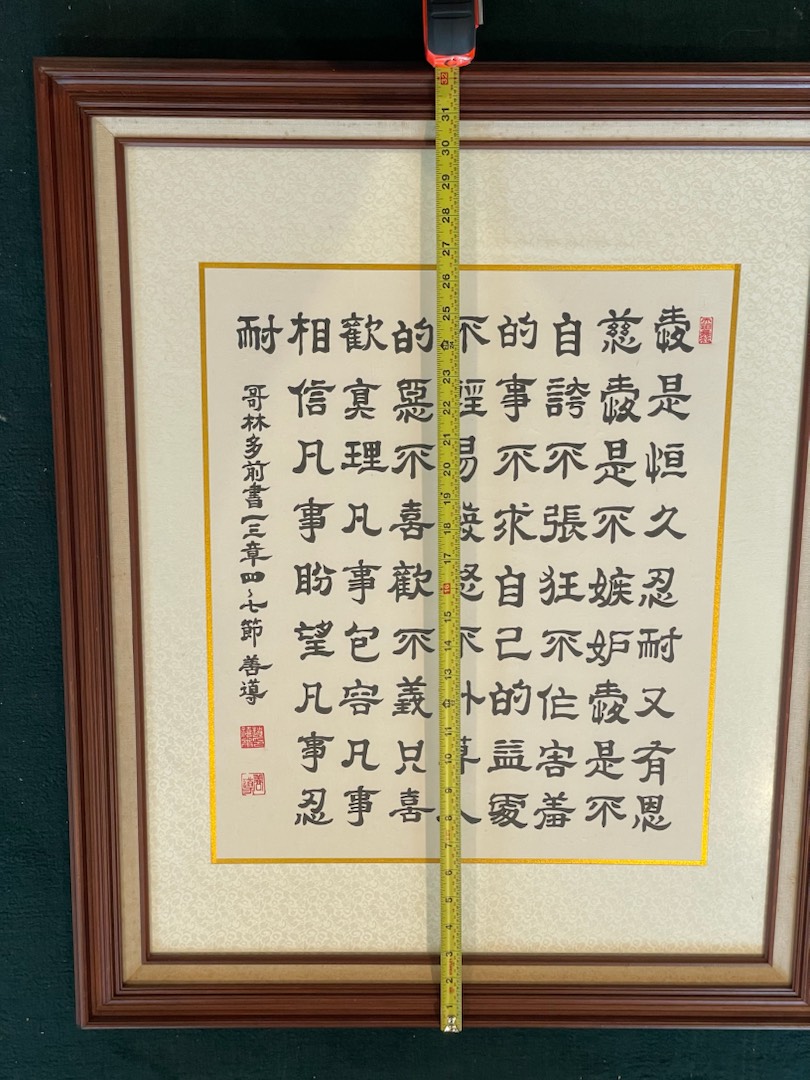 愛是恒久忍耐又有恩
慈愛是不嫉妒愛是不
自誇不張狂不作害羞
的事不求自己的益處
不輕易發怒不計算人
的惡不喜歡不義只喜
歡真理凡事包容凡事
相信凡事盼望凡事忍
耐
哥林多前書一三章四~七節 善導
1 2 3 4 5 6 7 8 9 10 11 12 13 14 15 16 17 18 19 20 21 22 23 24 25 26 27 28 29 30 31 32